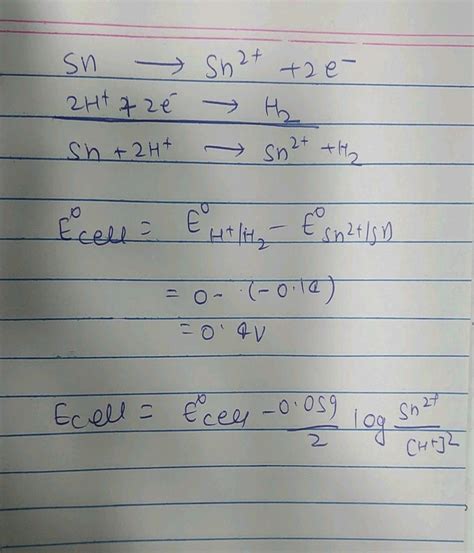 Sn → Sn²⁺ + 2e⁻
2H⁺ + 2e⁻ → H₂
Sn + 2H⁺ → Sn²⁺ + H₂
E⁰cell = E⁰H⁺/H₂ - E⁰Sn²⁺/Sn
= 0 - (-0.14)
= 0.4V
Ecell = E⁰cell - 0.059/2 log Sn²⁺/[H⁺]²